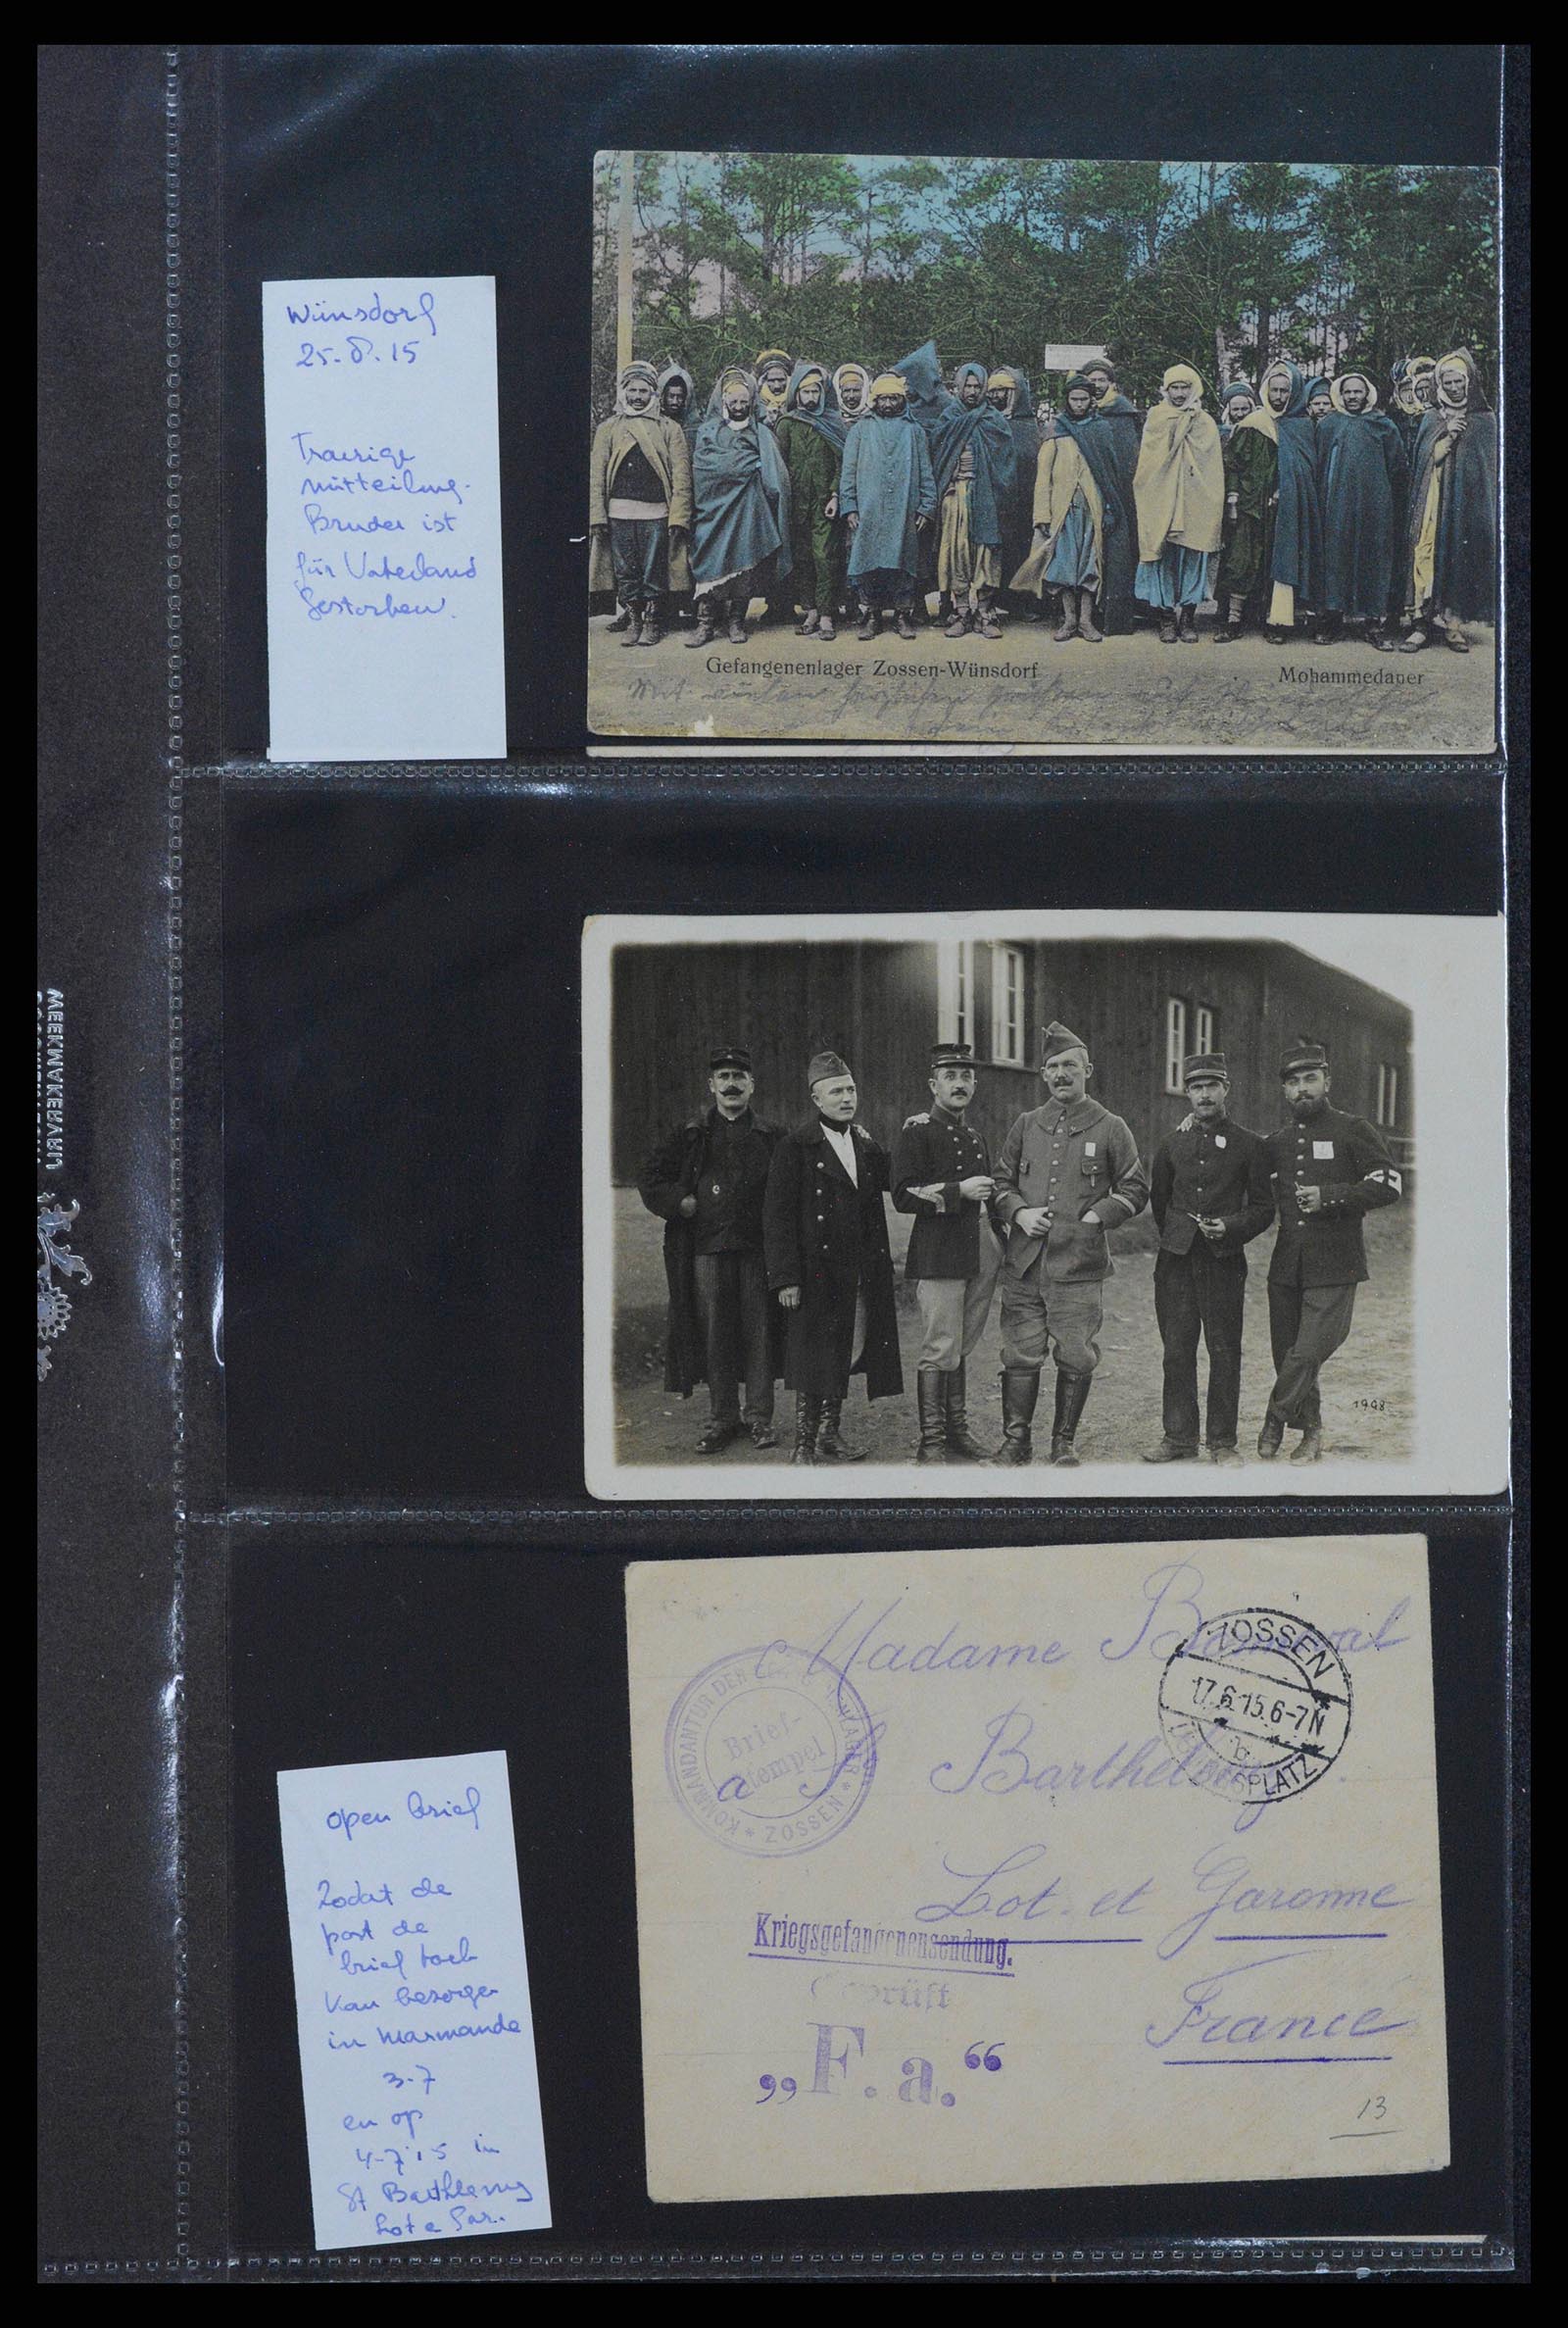 Wünsdorf
25.8.15
Traurige
mitteilung.
Bruder ist
für Vaterland
Gestorben.
Gefangenenlager Zossen-Wünsdorf
Mohammedaner
Mit
1908
Madame
a St Barthélemy
Lot. et Garonne
France
ZOSSEN
17.6.15.6-7N
b
KOMMANDANTUR DER
* ZOSSEN *
Brief-
stempel
Kriegsgefangenensendung.
Geprüft
„F. a.“
13
open brief
Zodat de
post de
brief toch
kan bezorgen
in Marmande
3-7
en op
4-7 15 in
St Barthlemy
Lot e Gar.